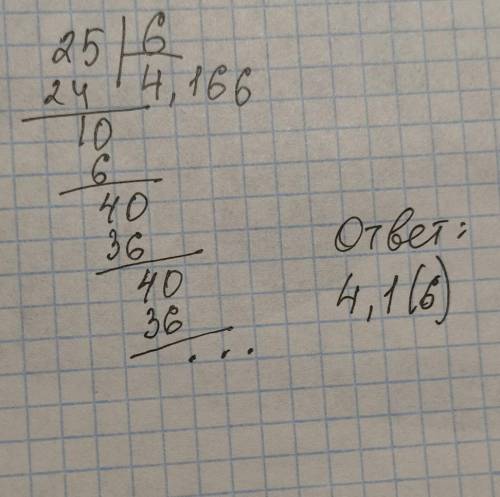 25 | 6
24 4,166
10
6
40
36
40
36
...
Ответ:
4,1(6)